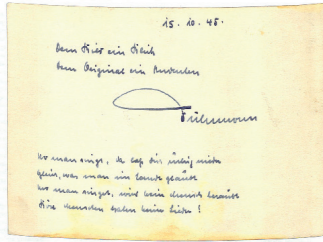 15. 10. 45.
Dem Kies ein Kleich
Dem Original ein Andenken
Fuhrmann
Wo man singt, da laß dich ruhig nieder
Gleich, was man im Lande glaubt
Wo man singet, wird kein Mensch beraubt
Böse Menschen haben keine Lieder!